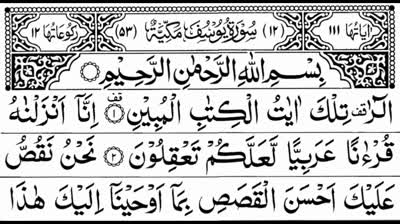 اٰیَاتُهَا ١١١ (١٢) سُوْرَةُ یُوْسُفَ مَكِّیَّةٌ (٥٣) رُكُوْعَاتُهَا ١٢
بِسْمِ اللّٰهِ الرَّحْمٰنِ الرَّحِیْمِ
الٓرٰ ۫ تِلْكَ اٰیٰتُ الْكِتٰبِ الْمُبِیْنِ ۫ ۝١ اِنَّاۤ اَنْزَلْنٰهُ
قُرْءٰنًا عَرَبِیًّا لَّعَلَّكُمْ تَعْقِلُوْنَ ۝٢ نَحْنُ نَقُصُّ
عَلَیْكَ اَحْسَنَ الْقَصَصِ بِمَاۤ اَوْحَیْنَاۤ اِلَیْكَ هٰذَا